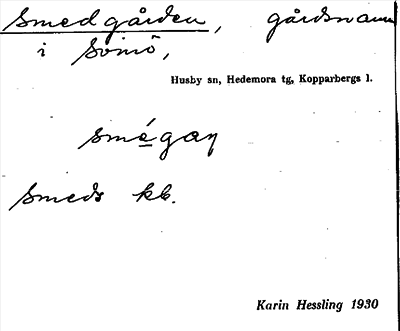 Smedgården, gårdsnamn
i Svinö,
Husby sn, Hedemora tg, Kopparbergs l.
smé̱gaṇ
Smeds kb.
Karin Hessling 1930